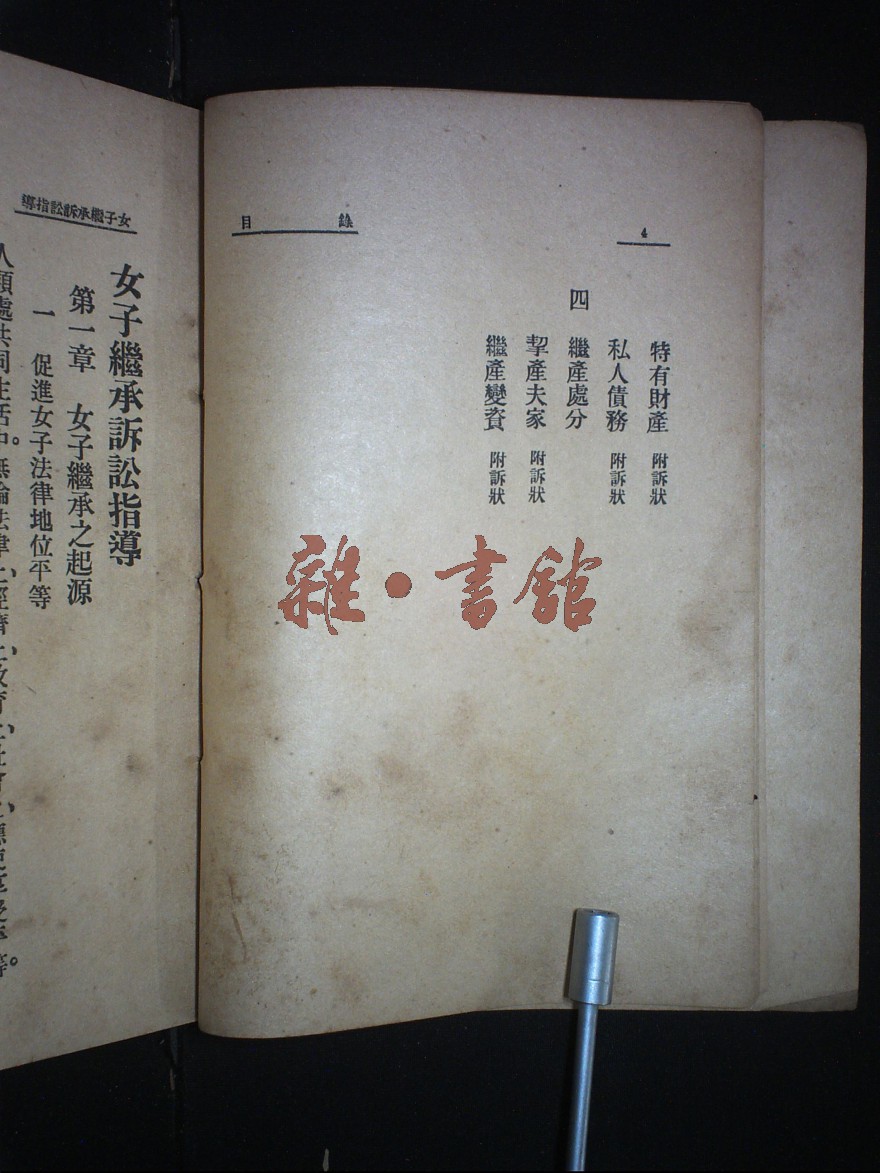 目錄
4
特有財產 附訴狀
私人債務 附訴狀
四 繼產處分
挈產夫家 附訴狀
繼產變賣 附訴狀
雜·書館
女子繼承訴訟指導
女子繼承訴訟指導
第一章 女子繼承之起源
一 促進女子法律地位平等
人類處共同生活中。無論法律上、經濟上、教育上、社會上、